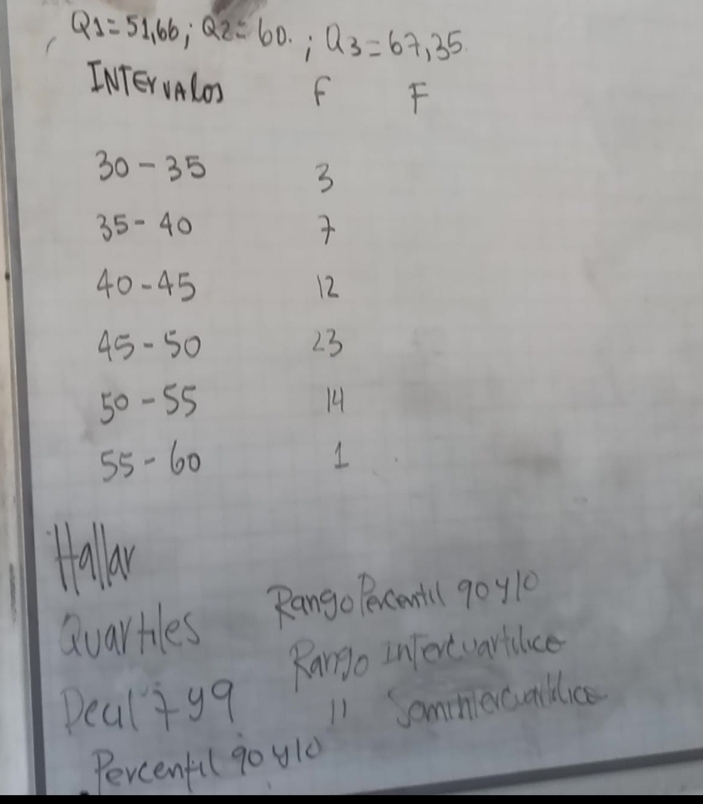 Q1=51,66; Q2=60. ; Q3=67,35
INTERVALOS f F
30-35 3
35-40 7
40-45 12
45-50 23
50-55 14
55-60 1
Hallar
Quartiles Rango Percentil 90 y 10
Decil 7 y 9 Rango intercuartilice
Percentil 90 y 10 " Semintercuartilice